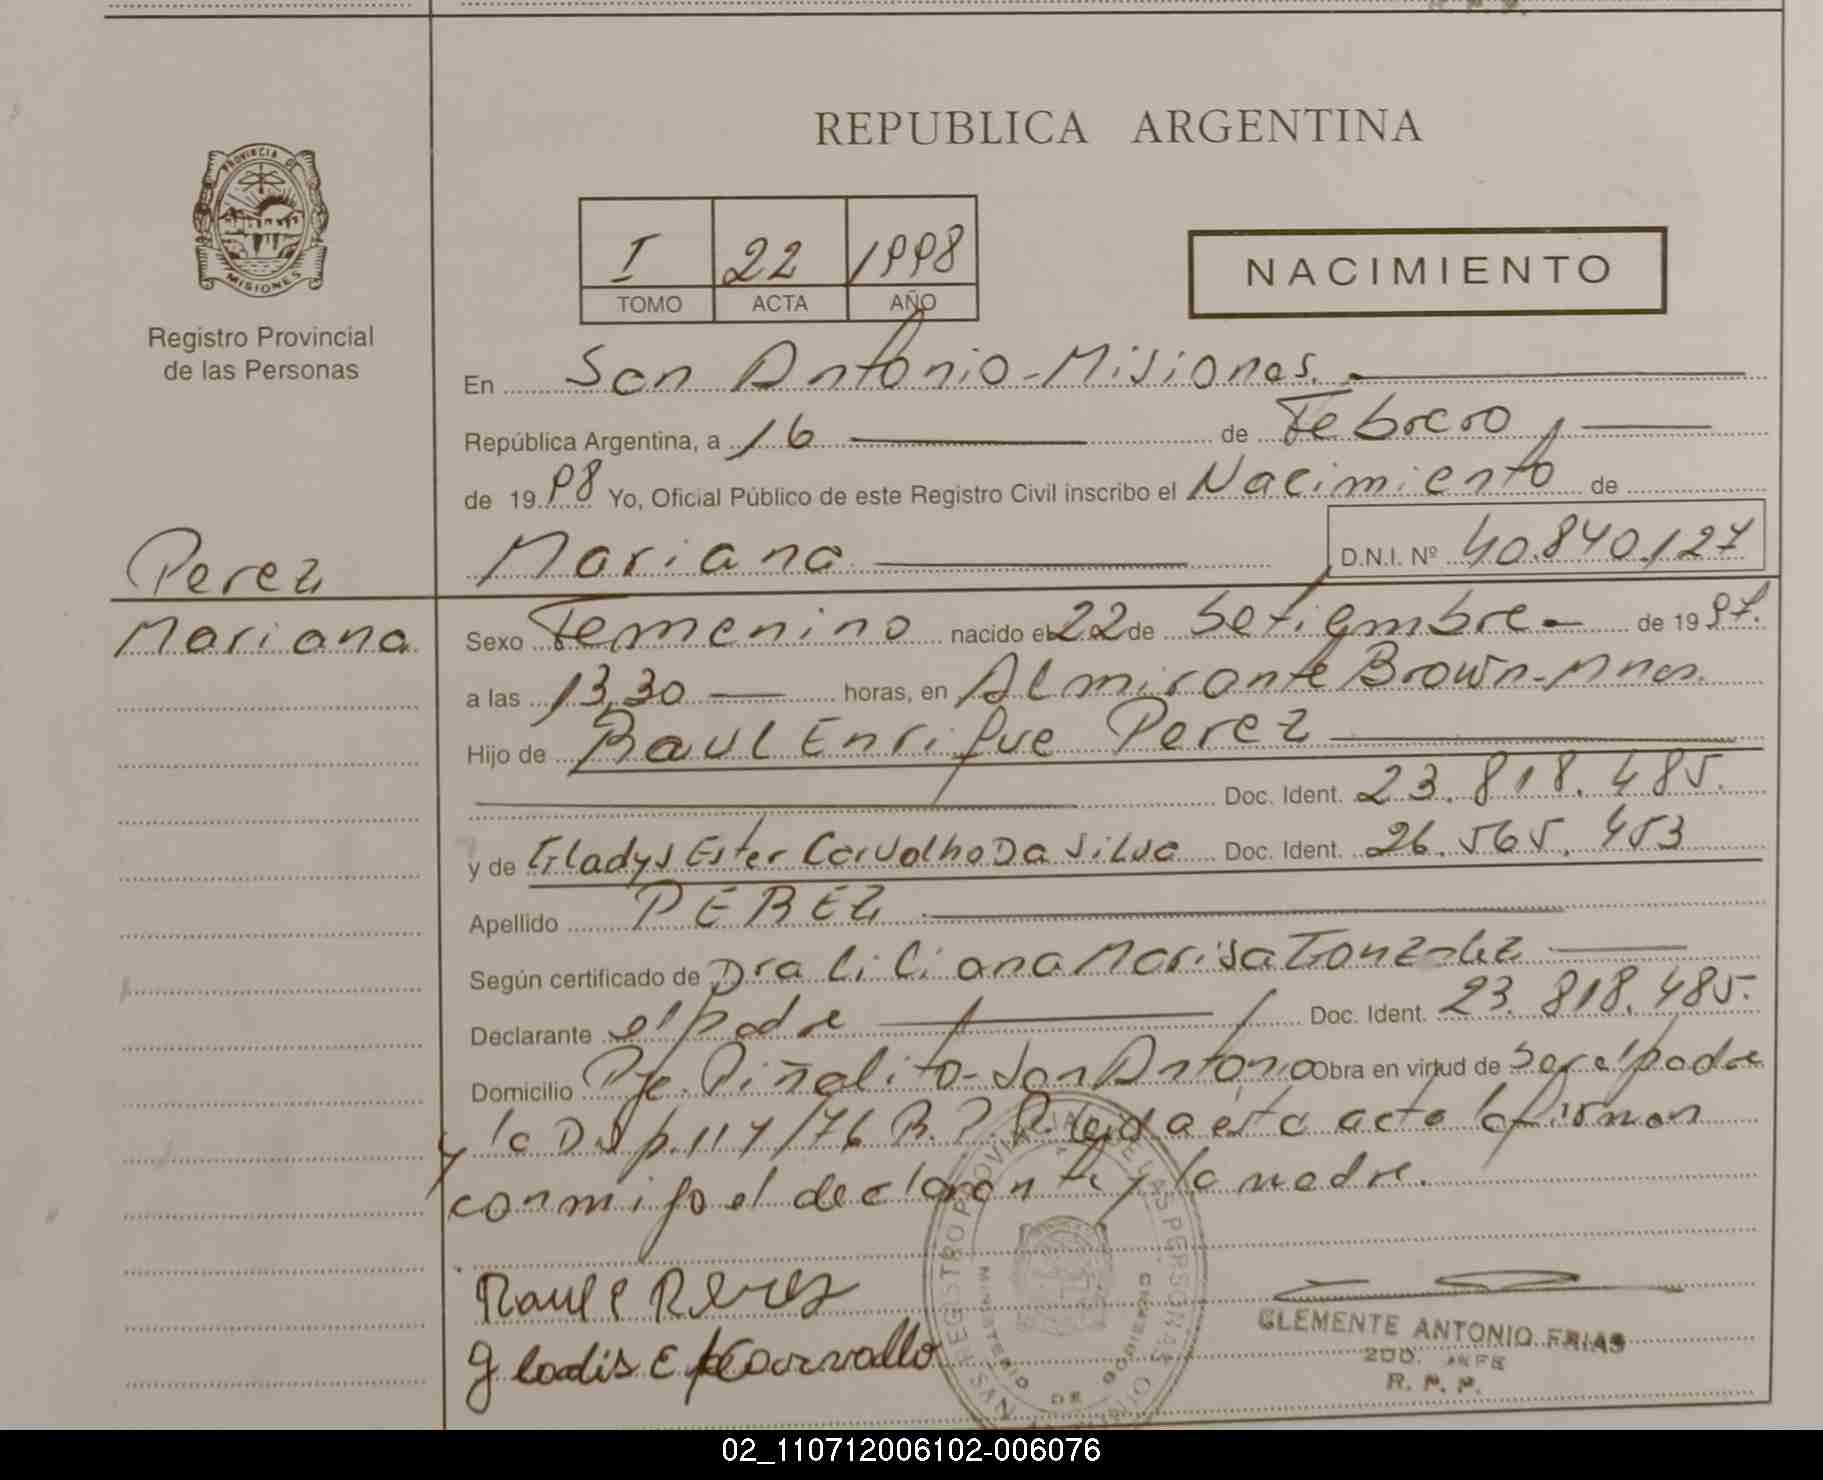 REPUBLICA ARGENTINA
PROVINCIA DE
MISIONES
Registro Provincial
de las Personas
I 22 1998
TOMO ACTA AÑO
NACIMIENTO
En San Antonio - Misiones.
República Argentina, a 16 de Febrero
de 1998 Yo, Oficial Público de este Registro Civil inscribo el Nacimiento de
Mariana D.N.I. Nº 40.840.127
Perez
Mariana
Sexo Femenino nacido el 22 de Setiembre - de 1997.
a las 13,30 horas, en Almirante Brown - Mnes.
Hijo de Raul Enrique Perez
Doc. Ident. 23.818.485.
y de Gladys Ester Carvalho Da Silva Doc. Ident. 26.565.453
Apellido PEREZ
Según certificado de Dra Liliana Marisa Gonzalez
Declarante el padre Doc. Ident. 23.818.485.
Domicilio Pje. Piñalito - San Antonio Obra en virtud de ser el padre
y la Disp. 117/76 R.P.P. Leida ésta acta la firman
conmigo el declarante y la madre.
Raul E Perez
Gladis E Carvallo
REGISTRO PROVINCIAL DE LAS PERSONAS
MINISTERIO DE GOBIERNO
CLEMENTE ANTONIO FRIAS
2DO. JEFE
R. P. P.
02_110712006102-006076